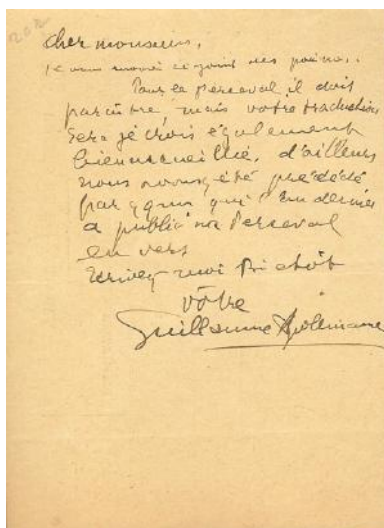 202
Cher monsieur,
je vous envoie ci joint mes poèmes..
Pour le Perceval, il doit
paraître, mais votre traduction
sera je crois également
bien accueillie. d'ailleurs
nous avons été précédé
par qqun qui l'an dernier
a publié un Perceval
en vers
Ecrivez-moi Bientôt
vôtre
Guillaume Apollinaire